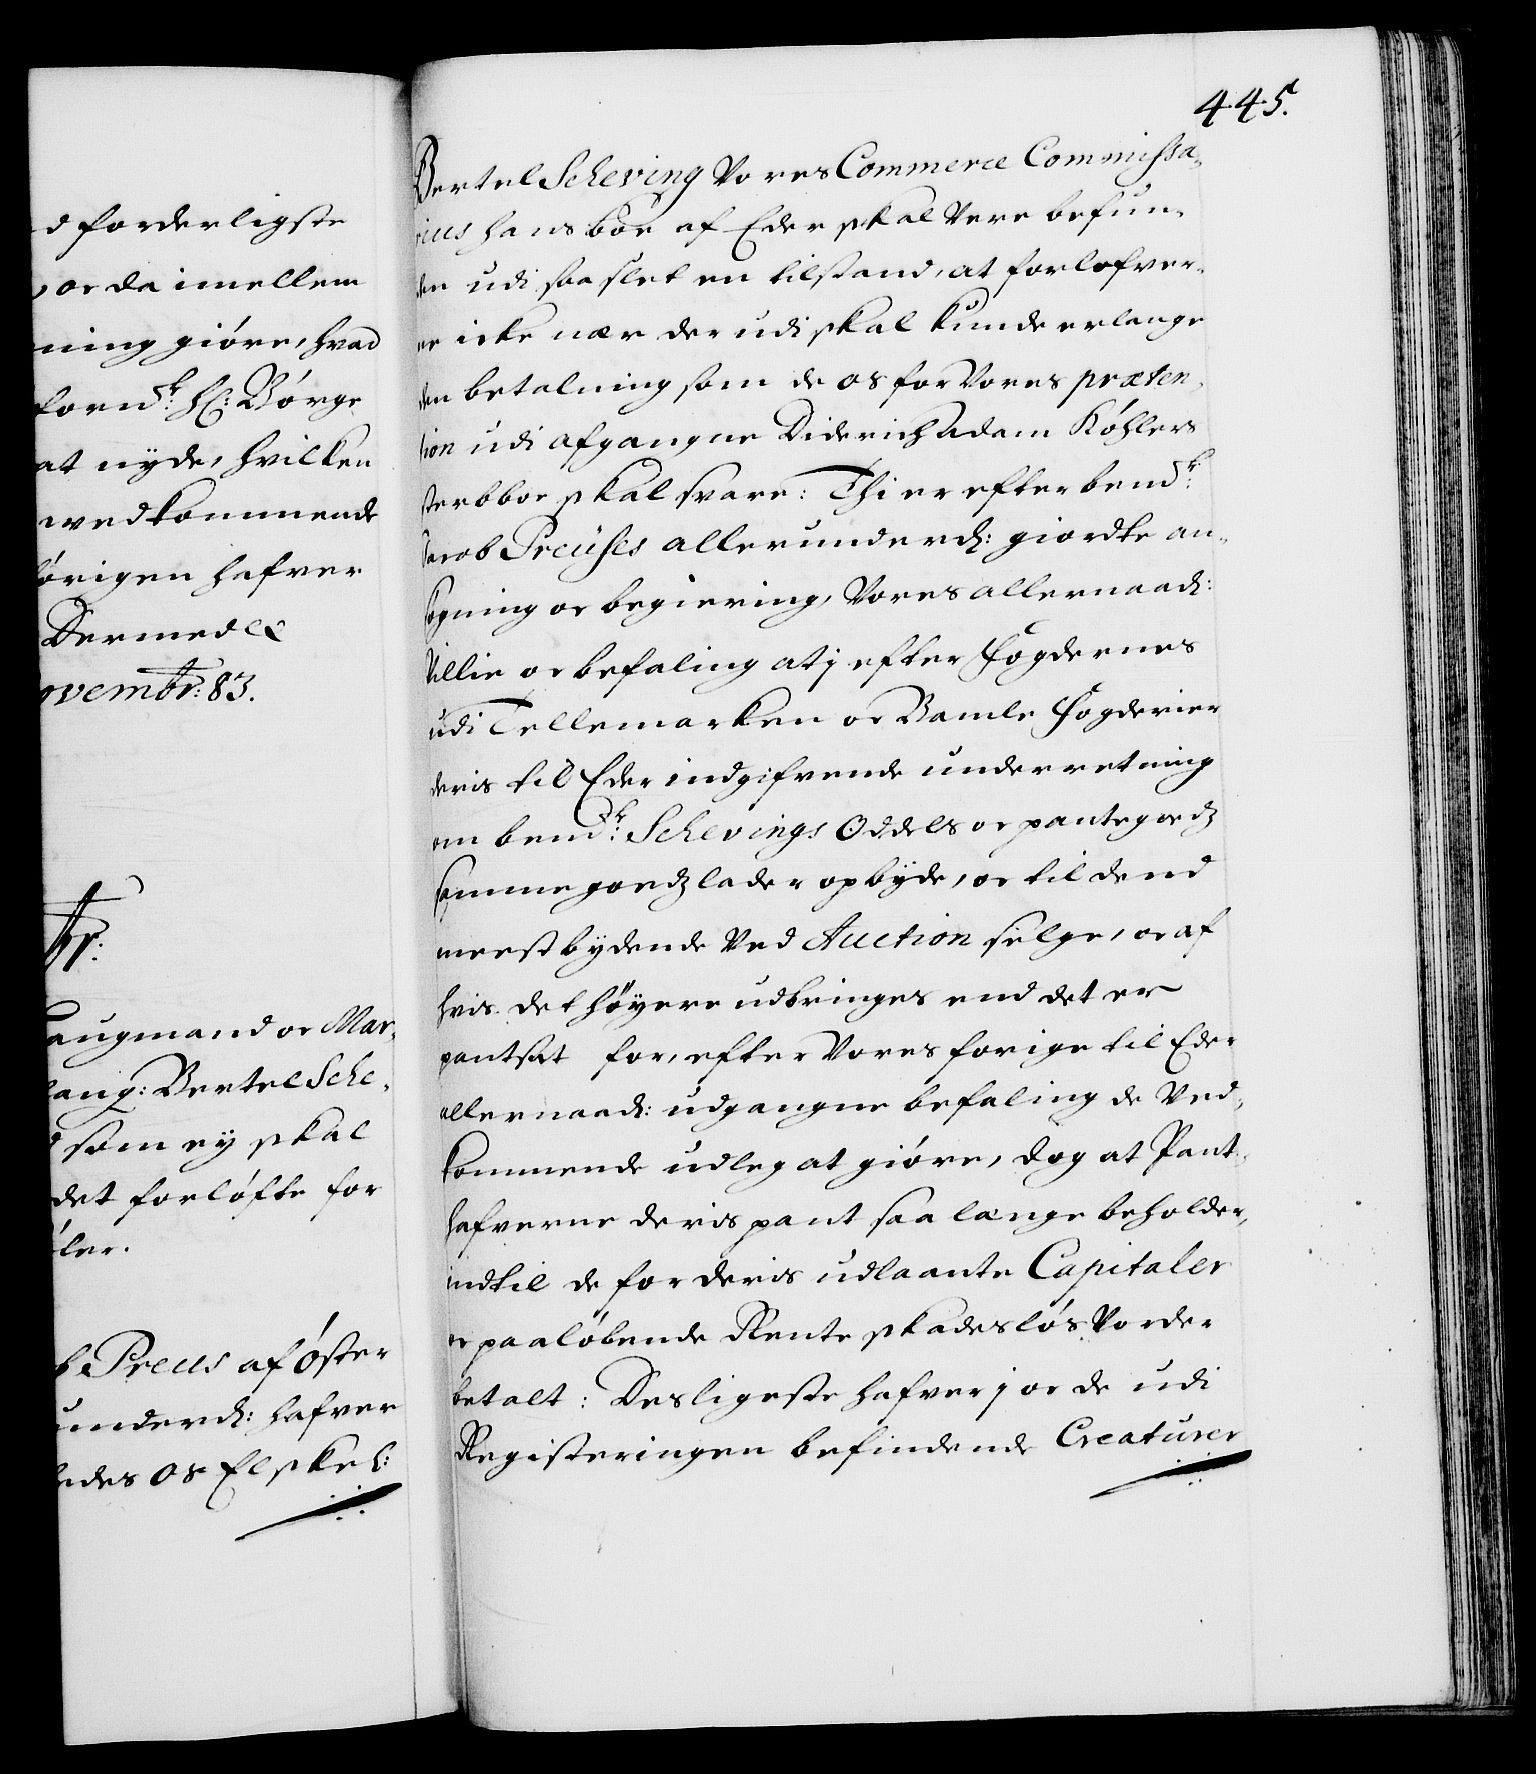 d forderligste
, oc da imellem
ning giöre, hvad
fornd:k H: Börge
at nyde, hvilken
vedkommende
hafver
Dermed &
ovembr: 83.
br:
augmand oc Mar-
lang: Bertel Sche-
som ey skal
det forløfte for
ler.
Preus af öster
underd: hafver
ledes os Elskel:
445.
Bertel Scheving Vores Commerce Commissa-
rius hans boe af Eder skal være befun-
den udi saa slet en tilstand, at forlofver-
ne icke nær der udi skal kunde erlange
den betalning som de os for Vores præten-
tion udi afgangne Diderich Adam Köhlers
sterbboe skal svare: Thi er efter bemd:te
Jacob Preuses allerunderd: giordte an-
sögning oc begiering, Vores allernaad:
Villie oc befaling at j efter Fogdernes
udi Tellemarken oc Bamle Fogderier
deris til Eder indgifvende underretning
om bemd:te Schevings Oddels oc pantegodz
samme godz lader opbyde, oc til dend
meestbydende ved Auction selge, oc af
hvis det höyere udbringes end det er
pantsat for, efter Vores forige til Eder
allernaad: udgangne befaling de Ved-
kommende udleg at giöre, dog at Pant-
hafverne deris pant saa længe beholder,
indtil de for deris udlaante Capitaler
oc paalöbende Rente skadeslös vorder
betalt: Desligeste hafver j oc de udi
Registeringen befindende Creaturer